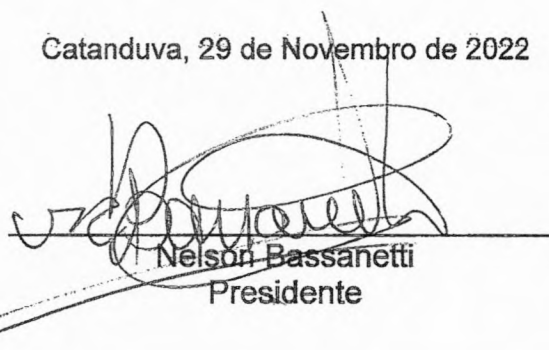 Catanduva, 29 de Novembro de 2022
Nelson Bassanetti
Presidente